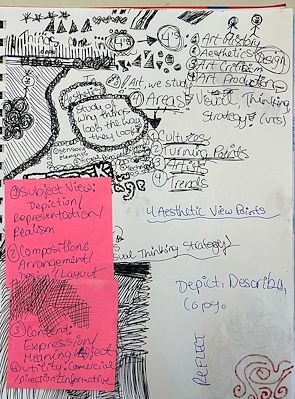 4's
4's
① Art History
② Aesthetics
Design
③ Art Critics
④ Art Production
In Art, we study
4 Areas
Visual Thinking
Strategy? (VTS)
Study of
why things
look the way
they look?
① Cultures
② Turning Points
③ Artists
④ Trends
4 Aesthetic View Points
Visual Thinking Strategy
① Subject View:
Depiction/
Representation/
Realism
② Compositions
Arrangement/
Design/Layout
③ Content:
Expression/
Meaning
④ Utility: Commercial
/Direction/Informative
Depict, Describe,
Copy.
REFLECT